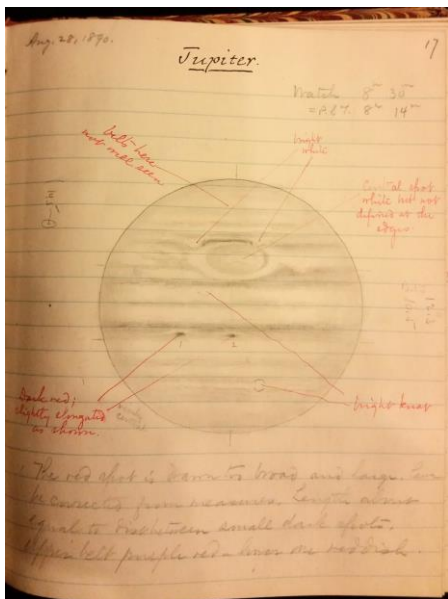 Aug. 28, 1890.
17
Jupiter.
Watch 8h 30m
= P.S.T. 8h 14m
belts here
not well seen
bright
white
Central spot
white but not
defined at the
edges
1
2
Dark red;
slightly elongated
as shown.
bright knot
The red spot is drawn too broad and large. Can
be corrected from measures. Length about
equal to dist between small dark spots.
Upper belt purple red - lower one reddish.